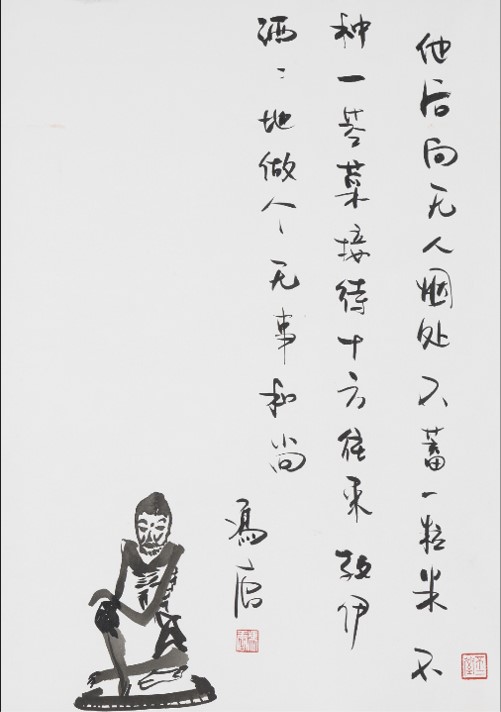 他后向无人烟处不蓄一粒米不
种一茎菜接待十方往来教伊
洒〻地做个无事和尚
冯唐